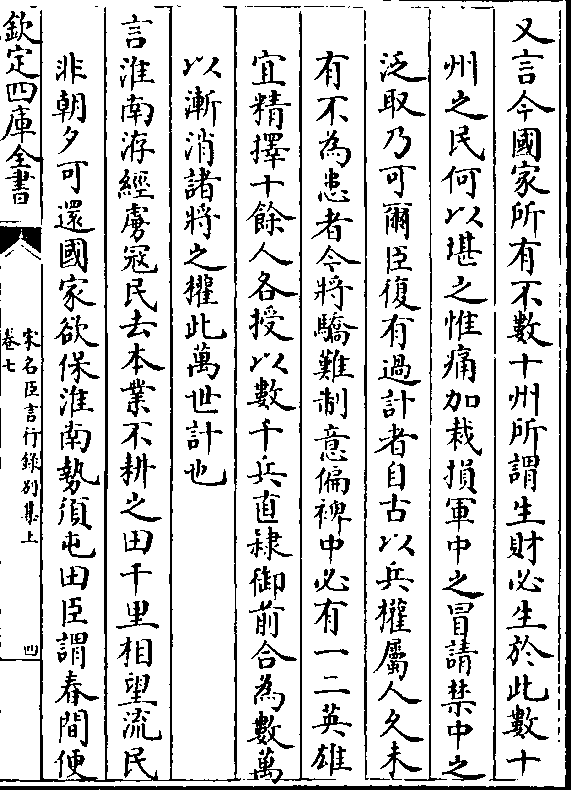 又言今國家所有不數十州所謂生財必生於此數十
州之民何以堪之惟痛加裁損軍中之冒請禁中之
泛取乃可爾臣復有過計者自古以兵權屬人久未
有不為患者今將驕難制意偏裨中必有一二英雄
宜精擇十餘人各授以數千兵直隷御前合為數萬
以漸消諸將之權此萬世計也
言淮南洊經虜寇民去本業不耕之田千里相望流民
非朝夕可還國家欲保淮南勢須屯田臣謂春間便
欽定四庫全書
宋名臣言行錄別集上
卷七
四